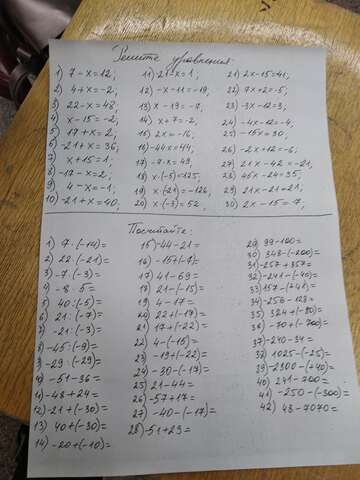 Решите уравнения:
1) 7-x=12;
2) 4+x=-2;
3) 22-x=48,
4) x-15=-2;
5) 17+x=2;
6) -21+x=36;
7) x+15=1;
8) -17-x=2;
9) 4-x=-1;
10) -21+x=40;
11) 21-x=1;
12) -x-11=-19;
13) x-19=-7;
14) x+7=-2;
15) 2x=-16;
16) -44x=44;
17) -7·x=49;
18) x·(-5)=125;
19) x·(21)=-126;
20) x·(-3)=52;
21) 2x-15=41;
22) 7x+2=-5;
23) -3x-12=3;
24) -4x-12=-4;
25) -15x=30;
26) -2x+12=-6;
27) 21x-42=-21;
28) 45x-24=35;
29) 21x-21=21;
30) 2x-15=7;
Посчитайте:
1) 7·(-14)=
2) 22·(-21)=
3) -7·(-3)=
4) -8·5=
5) 40:(-5)=
6) 21:(-7)=
7) -21:(-3)=
8) -45:(-9)=
9) -29:(-29)=
10) -51-36=
11) -48+24=
12) -21+(-30)=
13) 40+(-30)=
14) -20+(-10)=
15) -44-21=
16) -15+(-7)=
17) 41-69=
18) 21-(-15)=
19) 4-17=
20) 22+(-17)=
21) 17+(-22)=
22) 4-(-15)=
23) -19+(-22)=
24) -30-(-17)=
25) 21-44=
26) -57+17=
27) -40-(-17)=
28) -51+29=
29) 99-100=
30) 348-(-200)=
31) -257+357=
32) -241-(-40)=
33) 157-(+41)=
34) -256-128=
35) 324+(-80)=
36) -70+(-700)=
37) -240-34=
37) 1025-(-25)=
39) -2300-(+40)=
40) 241-700=
41) -250-(-300)=
42) 43-7070=